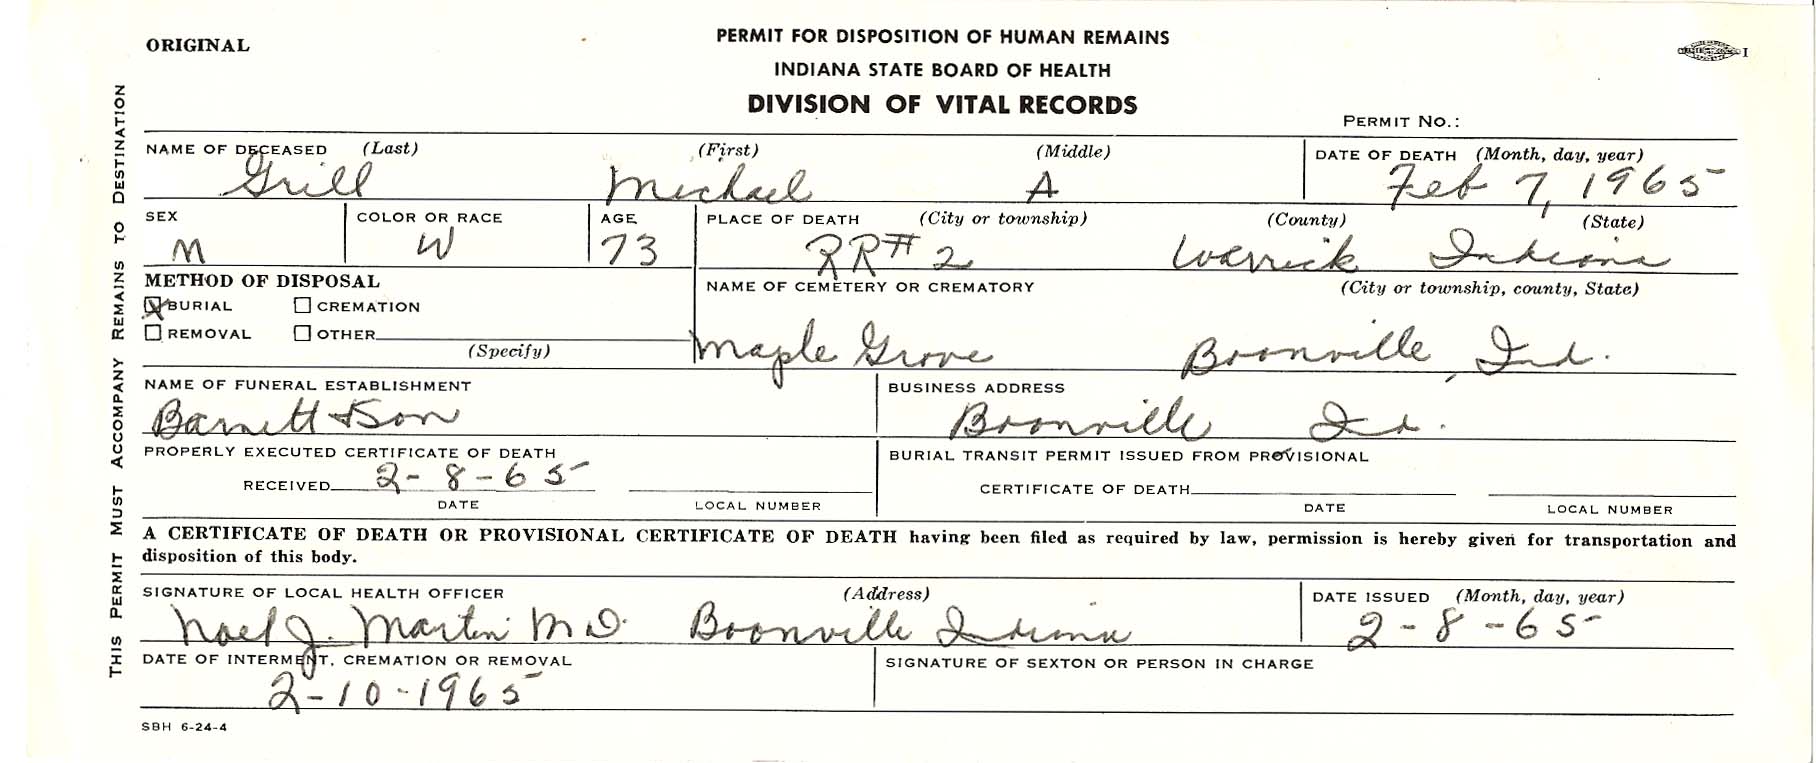 ORIGINAL
PERMIT FOR DISPOSITION OF HUMAN REMAINS
INDIANA STATE BOARD OF HEALTH
DIVISION OF VITAL RECORDS
PERMIT NO.:
THIS PERMIT MUST ACCOMPANY REMAINS TO DESTINATION
NAME OF DECEASED (Last) (First) (Middle) DATE OF DEATH (Month, day, year)
Grill Michael A Feb 7, 1965
SEX COLOR OR RACE AGE PLACE OF DEATH (City or township) (County) (State)
M W 73 RR# 2 Warrick Indiana
METHOD OF DISPOSAL NAME OF CEMETERY OR CREMATORY (City or township, county, State)
BURIAL CREMATION
REMOVAL OTHER
(Specify)
Maple Grove Boonville, Ind.
NAME OF FUNERAL ESTABLISHMENT BUSINESS ADDRESS
Barnett & Son Boonville Ind.
PROPERLY EXECUTED CERTIFICATE OF DEATH BURIAL TRANSIT PERMIT ISSUED FROM PROVISIONAL
RECEIVED 2-8-65 CERTIFICATE OF DEATH
DATE LOCAL NUMBER DATE LOCAL NUMBER
A CERTIFICATE OF DEATH OR PROVISIONAL CERTIFICATE OF DEATH having been filed as required by law, permission is hereby given for transportation and
disposition of this body.
SIGNATURE OF LOCAL HEALTH OFFICER (Address) DATE ISSUED (Month, day, year)
Noel J. Martin M D. Boonville Indiana 2-8-65
DATE OF INTERMENT, CREMATION OR REMOVAL SIGNATURE OF SEXTON OR PERSON IN CHARGE
2-10-1965
SBH 6-24-4